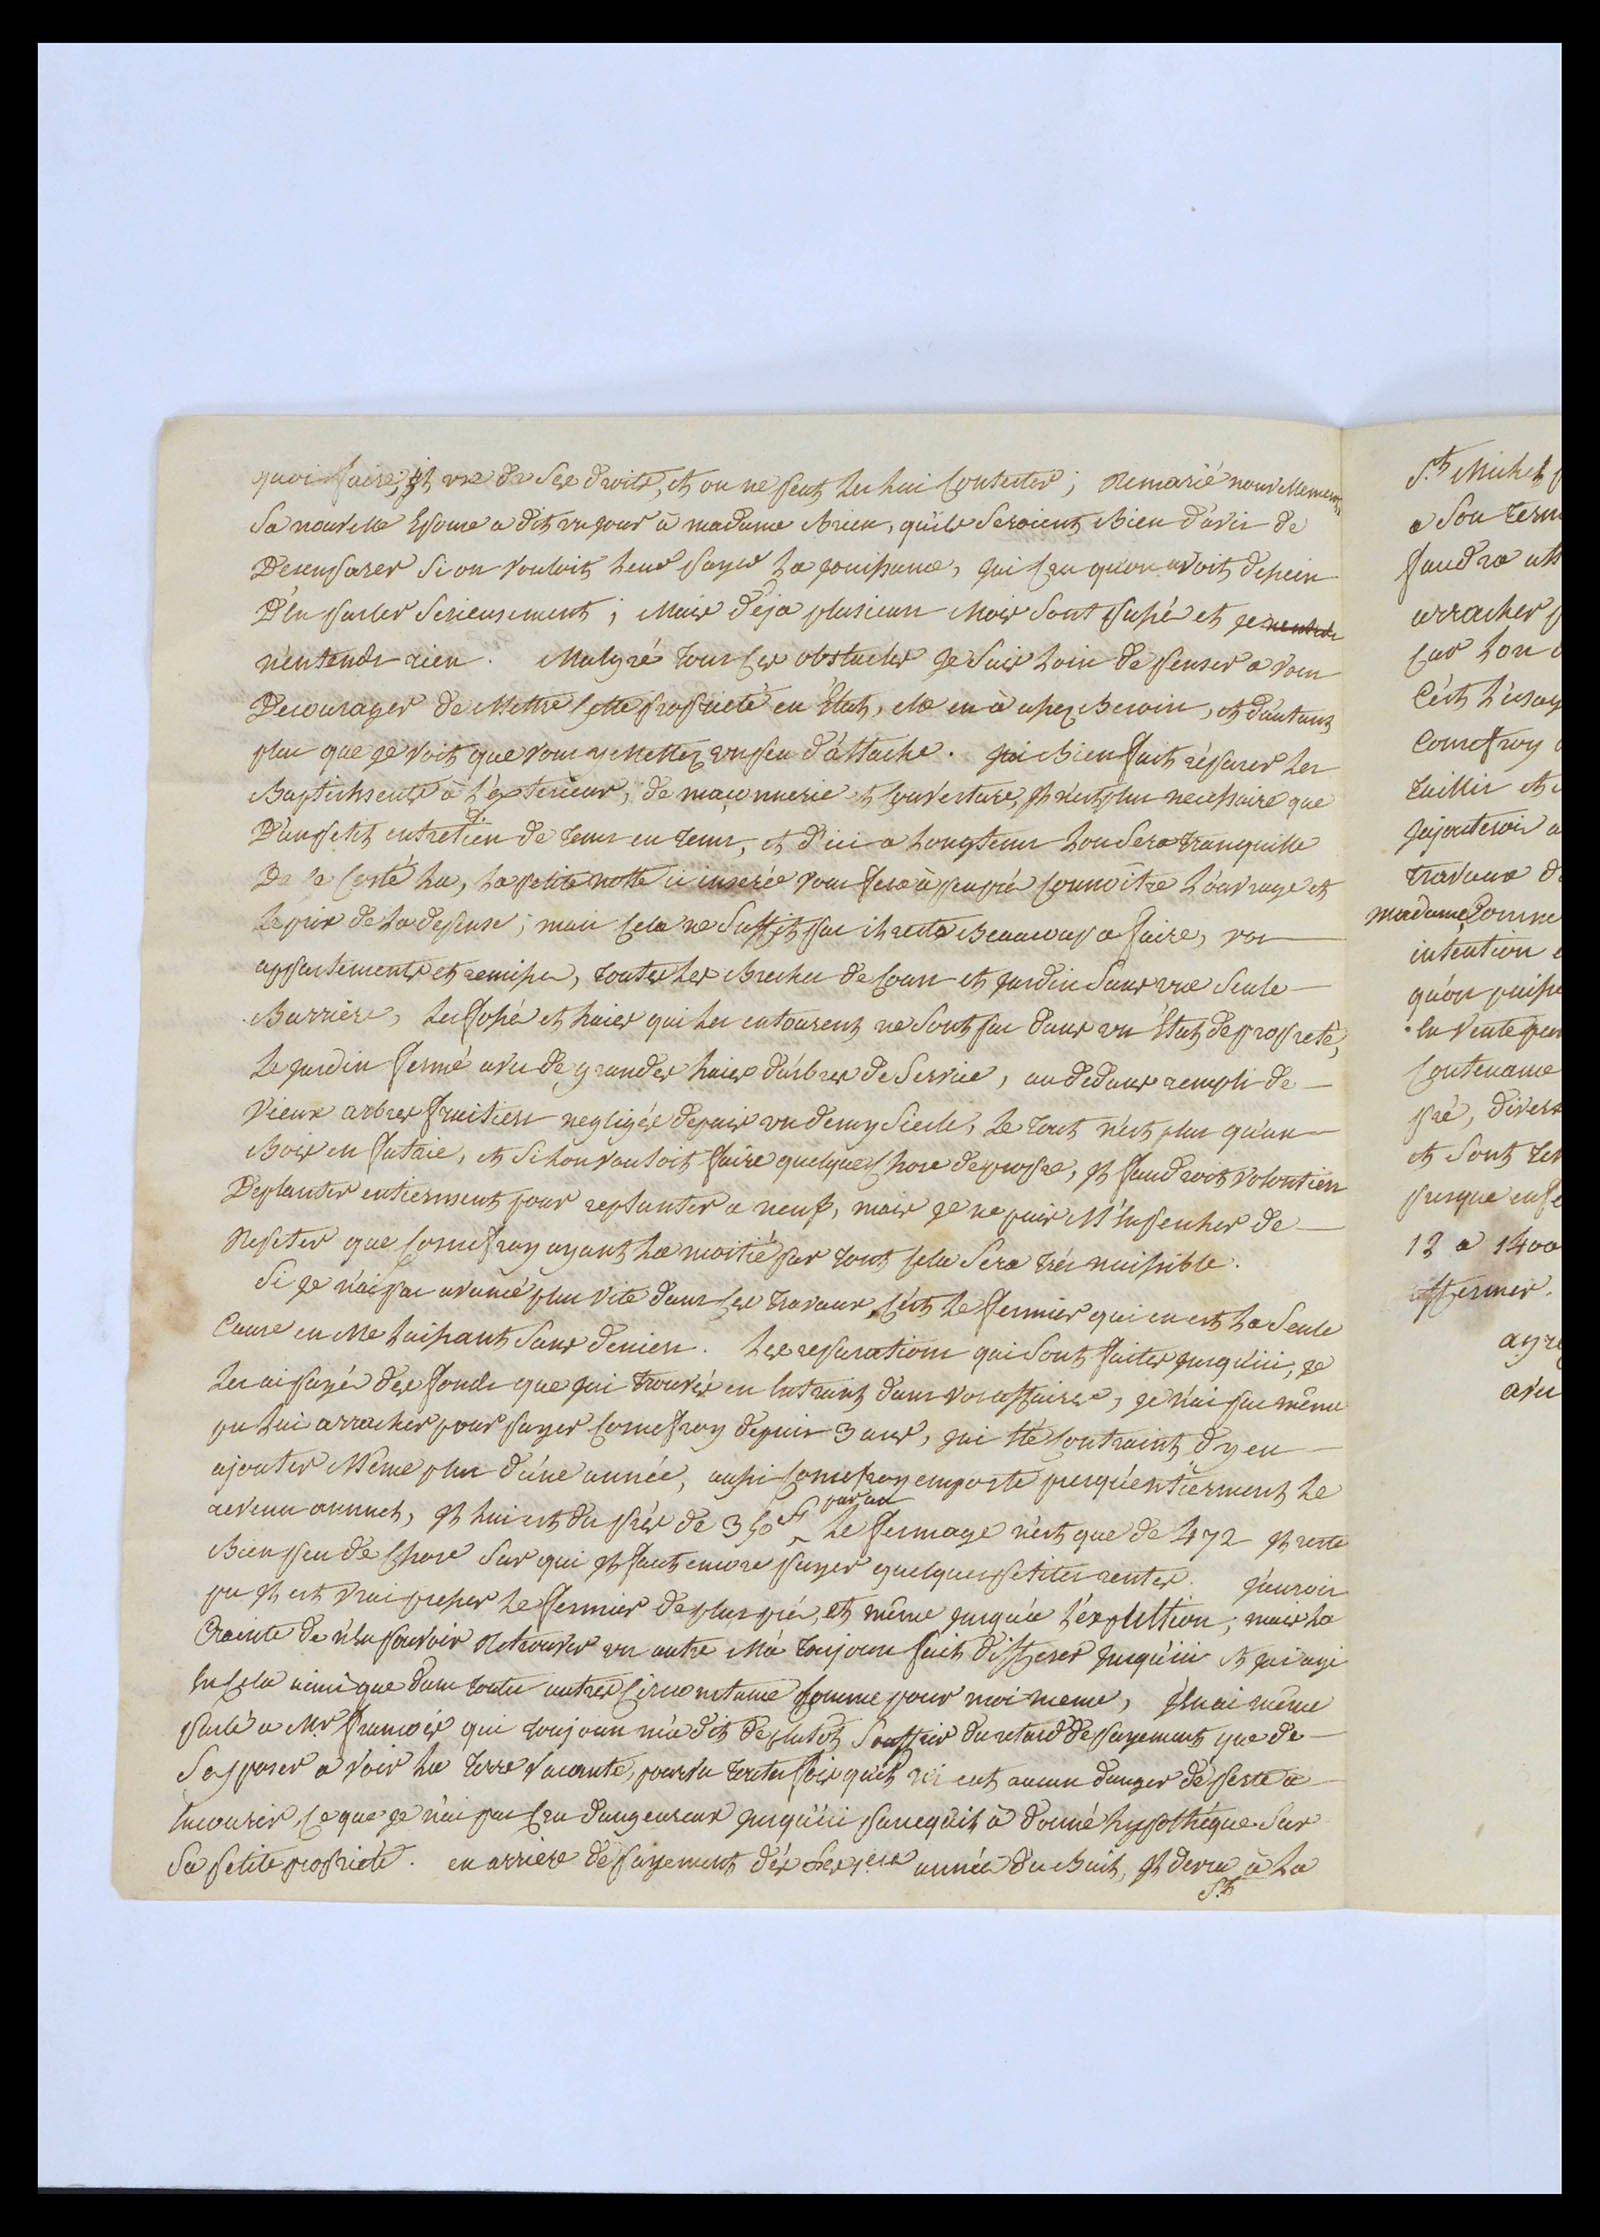 quoi faire, il use de ses droits, et on ne peut les lui Contester; Remarié nouvellement,
Sa nouvelle Epouse a dit un jour à madame Brien, qu'ils Seroient Bien d'avis de
Desemparer Si on Vouloit leur payer La jouissance, jai Cru qu'on avoit dessein
D'en parler Serieusement; Mais déja plusieurs Mois Sont passé et je nentends
n'entends rien. Malgré tous Ces obstacles je Suis Loin de penser a vous
Decourager de Mettre Cette propriété en Etat, elle en à assez Besoin, et d'autant
plus que je voit que vous y Mettez un peu d'attache. jai Bien fait réparer les
Baptissents à L'exterieur, de maçonnerie et Couverture, il n'est plus necessaire que
D'un petit entretien de tems en tems, et d'ici a Longtems Lon Sera tranquille
De Ce Costé La, La petite notte ci inserée vous fera à peu pré Connoître L'ouvrage et
Le prix de La depense; mais Cela ne Suffit pas il reste Beaucoup a faire, vos
appartements et remises, toutes les Breches de Cours et jardin Sans une Seule
Barriere, les fossé et haies qui les entourent ne Sont pas dans un Etat de propreté,
Le jardin fermé avec de grandes haies d'arbres de Service, au dedans rempli de
vieux arbres fruitiers negligés depuis un demy Siecle, Le tout n'est plus qu'un
Bois en futaie, et Si Lon vouloit faire quelque Chose de propre, il faudroit volontiers
Deplanter entierement pour replanter a neuf, mais je ne puis M'enpecher de
Repeter que Comefroy ayant La moitié par tout Cela Sera très nuissible.
Si je n'ai pas avancé plus vite dans Ces travaux, C'est Le fermier qui en est La Seule
Cause en Me Laissant Sans deniers. Les reparations qui Sont faites jusqu'ici, je
Les ai payé des fonds que jai trouvés en Entrant dans vos affaires, je n'ai pas même
pu Lui arracher pour payer Comefroy depuis 3 ans, jai été Contraint d'y en
ajouter Même plus d'une année, aussi Comefroy emporte presqu'entierment Le
revenu annuel, il lui est du près de 350 ff par an Le fermage n'est que de 472 il reste
Bien peu de Chose Sur qui il faut encore payer quelques petites rentes. J'aurois
pu il est vrai presser Le fermier de plus près, et même jusqu'a L'expultion, mais La
Crainte de n'en pouvoir Retrouver un autre M'a toujours fait differer jusqu'ici et jai agi
En Cela ainsi que dans toutes autres Circonstance Comme pour moi meme, J'en ai même
parlé a Mr. François qui toujours m'a dit de plutot Souffrir du retard de payement que de
S'esposer a voir La terre vacante, pourvu toutes fois qu'il n'i eut aucun danger de perte a
Encourir, Ce que je n'ai pas Cru dangeureux jusqu'ici parcequ'il à donné hypothèque Sur
Sa petite propriété. en arriere de payement dès Ses 1eres année du Bail, il devra à La
St.
St. Michel
a Son term
faudra att
arracher
Car Lon
C'est L'usag
Comefroy
taillis et
Jajouterois a
travaux d
madame Comme
intention
qu'on puisse
la vente
Contenance
pré, divers
et Sont
presque
12 a 1400
affermer.
agré
avec